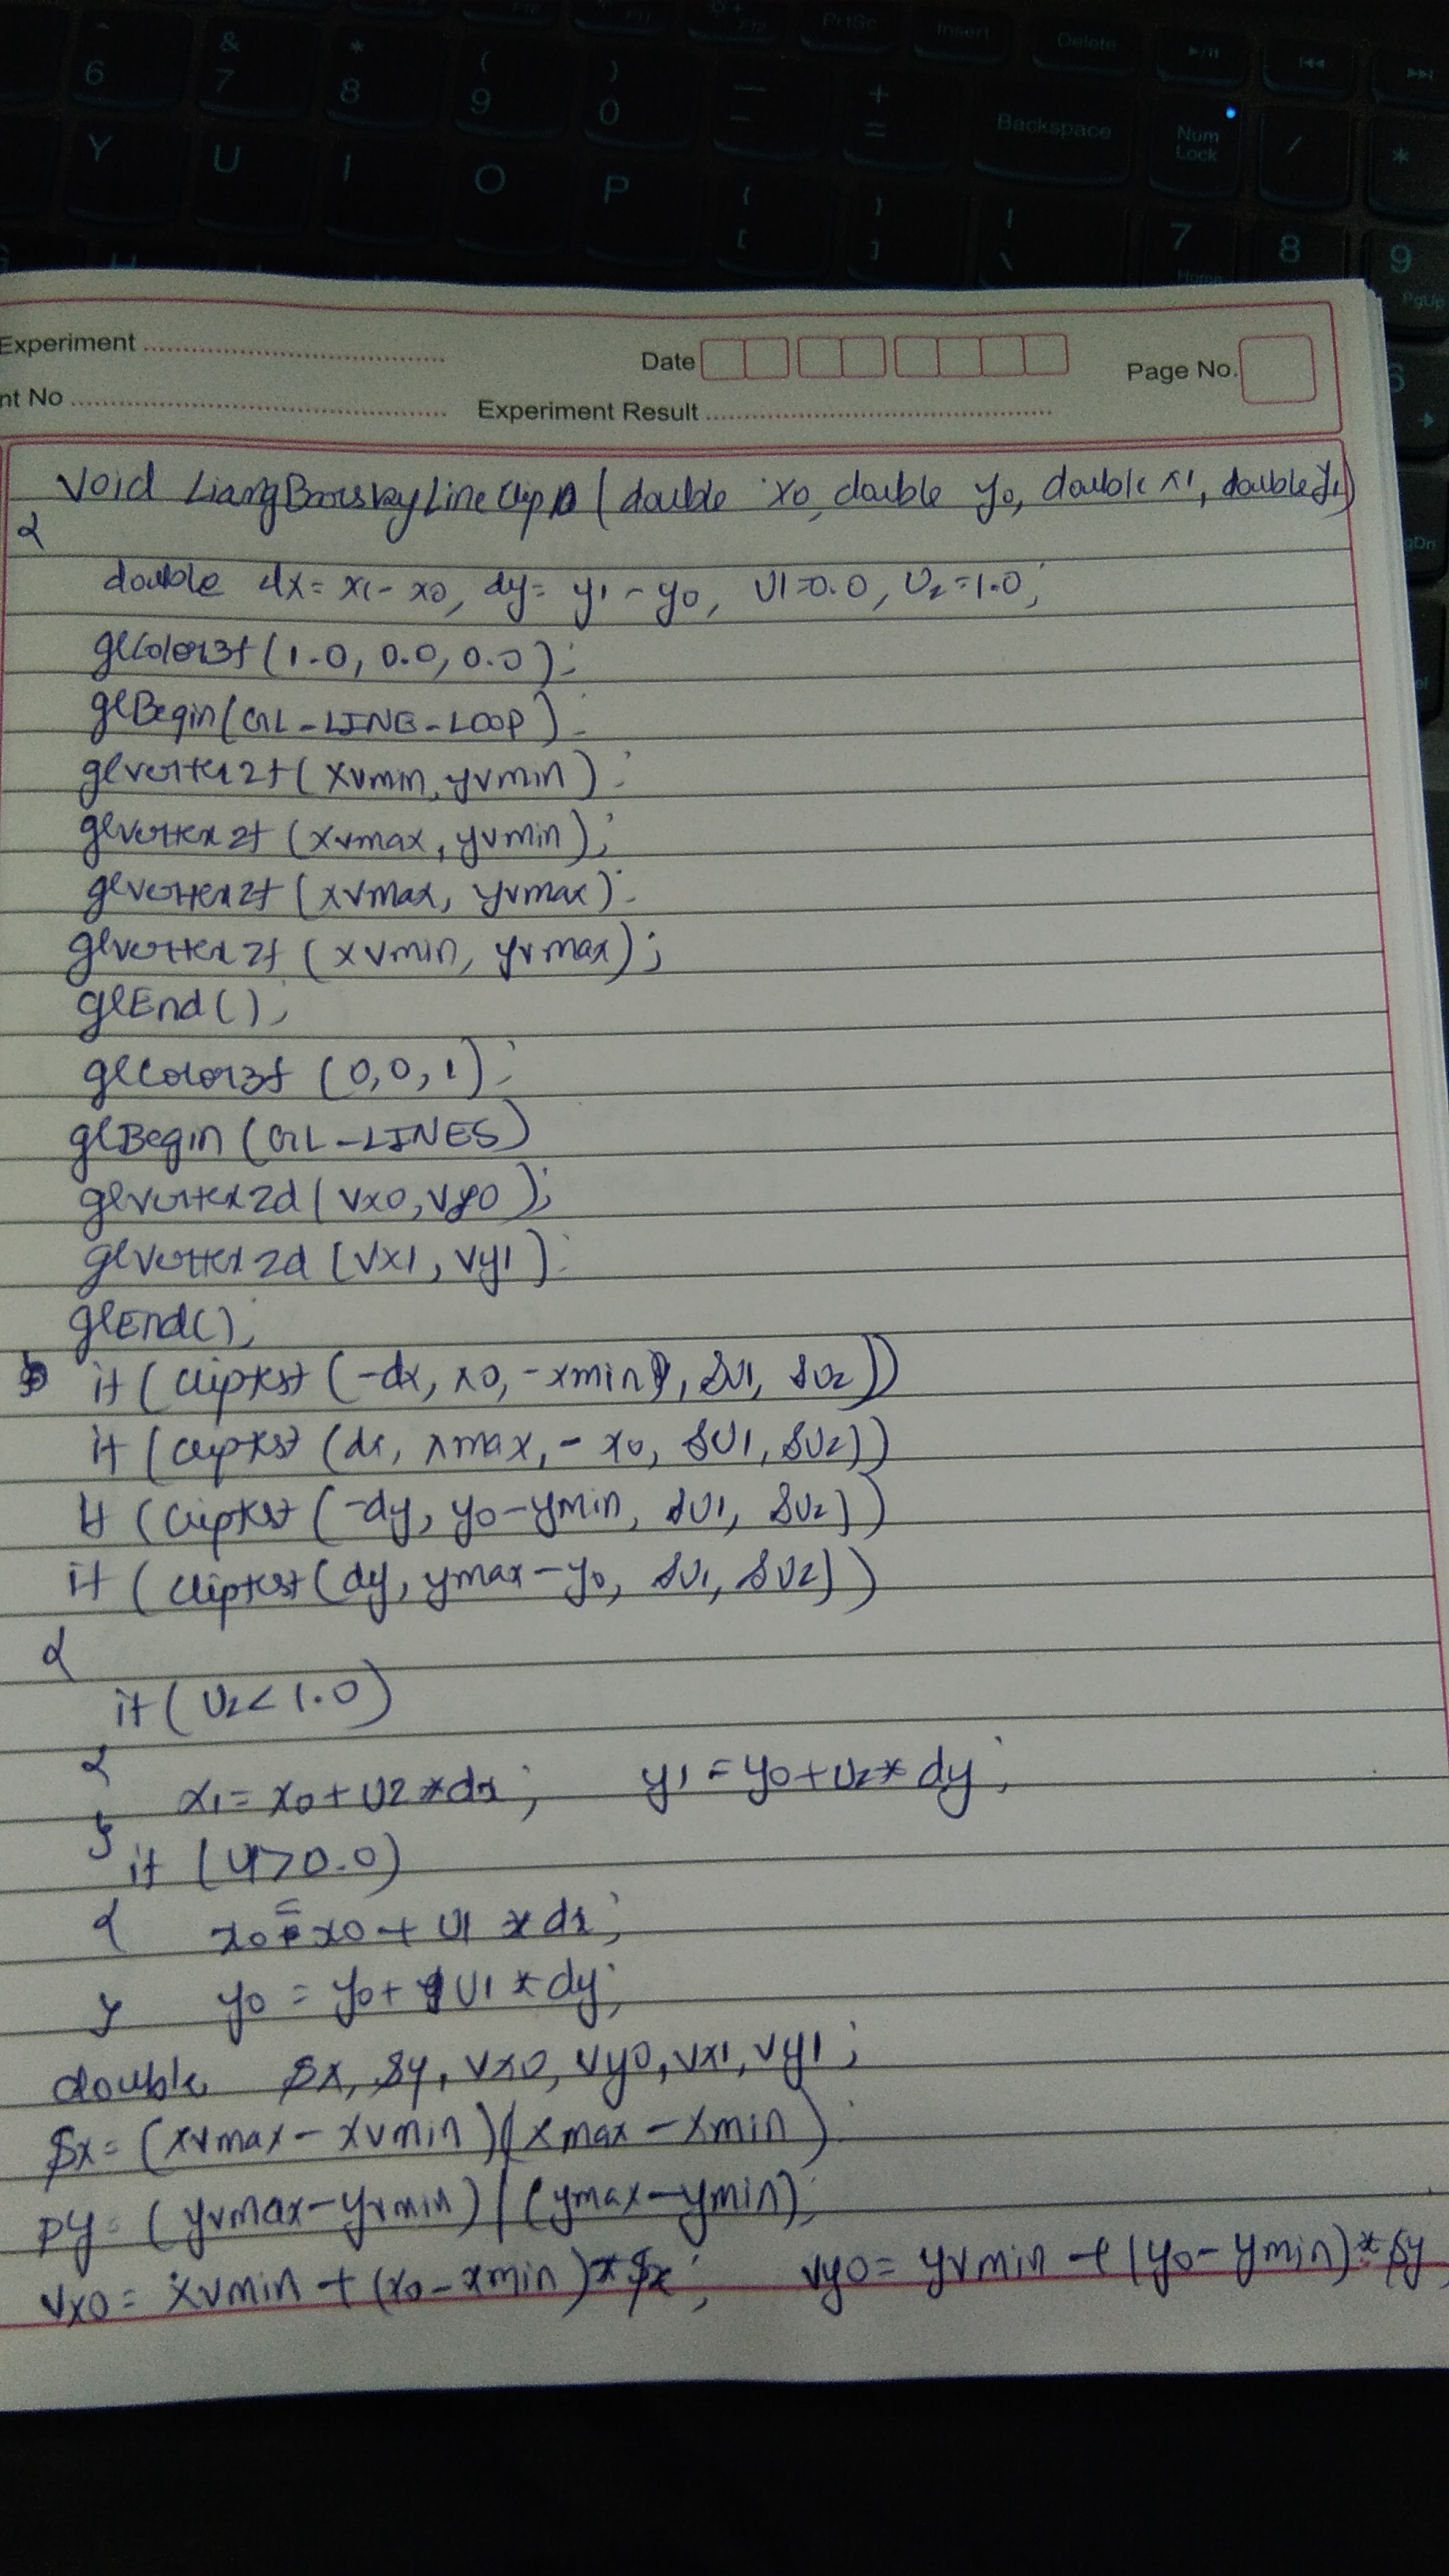 6 & 7 * 8 ( 9 ) 0 — - + = Backspace Num Lock / *
PrtSc Insert Delete
Y U I O P { [ } ] | \ 7 Home 8 9 PgUp
Experiment Date Page No.
nt No Experiment Result
void LiangBarskyLineClip (double x0, double y0, double x1, double y1)
{
double dx = x1 - x0, dy = y1 - y0, U1=0.0, U2=1.0;
glColor3f (1.0, 0.0, 0.0);
glBegin(GL-LINE-LOOP);
glvertex2f (xvmin, yvmin);
glvertex2f (xvmax, yvmin);
glvertex2f (xvmax, yvmax);
glvertex2f (xvmin, yvmax);
glEnd();
glColor3f (0,0,1);
glBegin (GL-LINES)
glvertex2d (vx0, vy0);
glvertex2d (vx1, vy1);
glEnd();
if (cliptest (-dx, x0, -xmin, &U1, &U2))
if (cliptest (dx, xmax, - x0, &U1, &U2))
if (cliptest (-dy, y0-ymin, &U1, &U2))
if (cliptest (dy, ymax-y0, &U1, &U2))
{
if (U2<1.0)
{
x1= x0+U2*dx; y1=y0+U2*dy;
}
if (U1>0.0)
{ x0=x0+U1*dx;
} y0=y0+U1*dy;
double Sx, Sy, vx0, vy0, vx1, vy1;
Sx= (xvmax-xvmin)/(xmax-xmin);
py= (yvmax-yvmin)/(ymax-ymin);
vx0= xvmin+(x0-xmin)*Sx; vy0= yvmin+(y0-ymin)*Sy